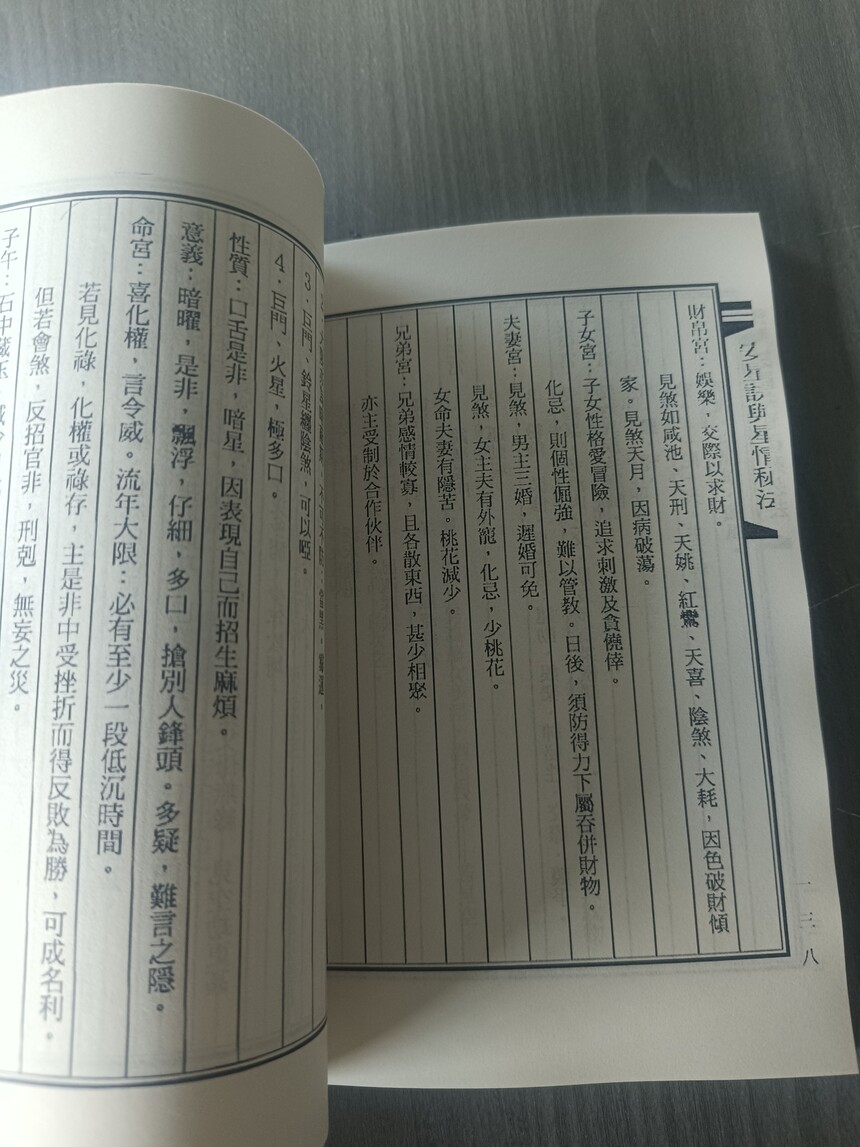 安星訣與星情秘法
一三八
財帛宮：娛樂，交際以求財。
見煞如咸池、天刑、天姚、紅鸞、天喜、陰煞、大耗，因色破財傾
家。見煞天月，因病破蕩。
子女宮：子女性格愛冒險，追求刺激及貪僥倖。
化忌，則個性倔強，難以管教。日後，須防得力下屬吞併財物。
夫妻宮：見煞，男主三婚，遲婚可免。
見煞，女主夫有外寵，化忌，少桃花。
女命夫妻有隱苦。桃花減少。
兄弟宮：兄弟感情較寡，且各散東西，甚少相聚。
亦主受制於合作伙伴。
3．巨門、鈴星纏陰煞，可以啞。
4．巨門、火星，極多口。
性質：口舌是非，暗星，因表現自己而招生麻煩。
意義：暗曜，是非，飄浮，仔細，多口，搶別人鋒頭。多疑，難言之隱。
命宮：喜化權，言令威。流年大限：必有至少一段低沉時間。
若見化祿，化權或祿存，主是非中受挫折而得反敗為勝，可成名利。
但若會煞，反招官非，刑剋，無妄之災。
子午：石中藏玉，